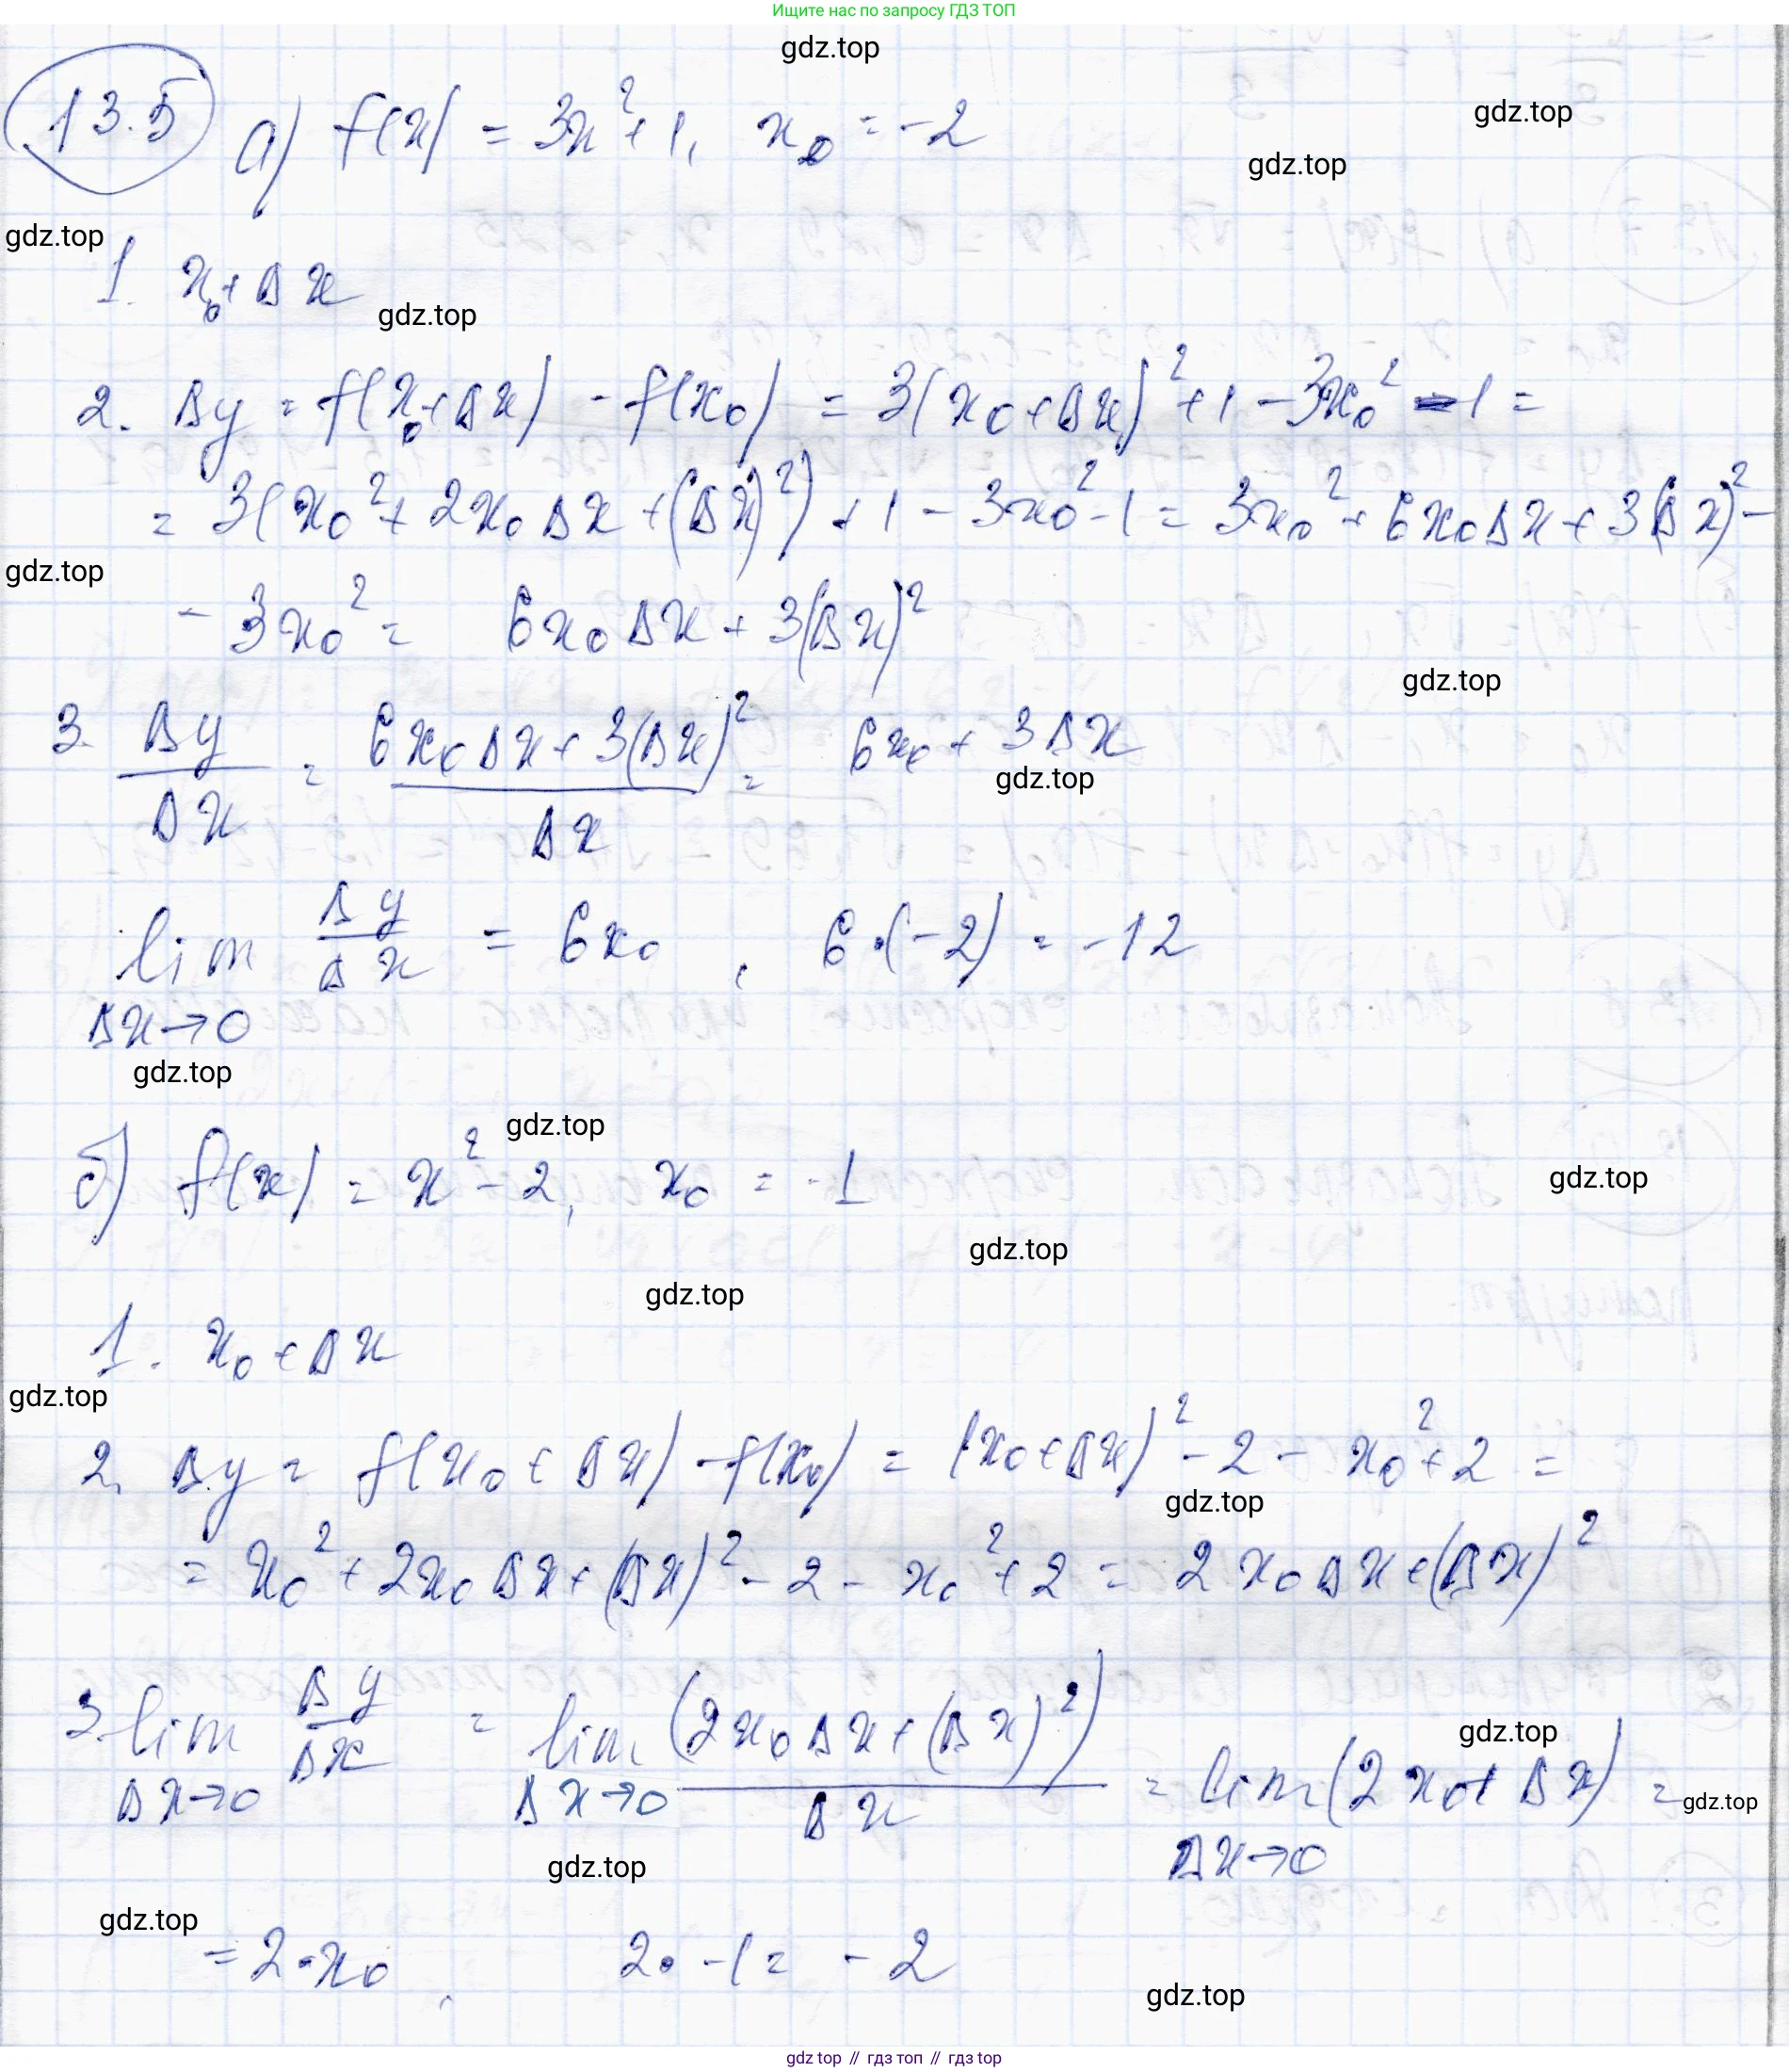 Ищите нас по запросу ГДЗ ТОП
gdz.top
13.5 а) f(x) = 3x² + 1, x₀ = -2
gdz.top
gdz.top
gdz.top
1. x₀ + Δx
gdz.top
2. Δy = f(x₀+Δx) - f(x₀) = 3(x₀+Δx)² + 1 - 3x₀² - 1 =
= 3(x₀² + 2x₀Δx + (Δx)²) + 1 - 3x₀² - 1 = 3x₀² + 6x₀Δx + 3(Δx)² -
gdz.top
- 3x₀² = 6x₀Δx + 3(Δx)²
gdz.top
3. Δy/Δx = (6x₀Δx + 3(Δx)²)/Δx = 6x₀ + 3Δx
gdz.top
lim Δy/Δx = 6x₀, 6·(-2) = -12
Δx→0
gdz.top
gdz.top
б) f(x) = x² - 2, x₀ = -1
gdz.top
gdz.top
gdz.top
1. x₀ + Δx
gdz.top
2. Δy = f(x₀ + Δx) - f(x₀) = (x₀+Δx)² - 2 - x₀² + 2 =
gdz.top
= x₀² + 2x₀Δx + (Δx)² - 2 - x₀² + 2 = 2x₀Δx + (Δx)²
3. lim Δy/Δx = lim (2x₀Δx + (Δx)²)/Δx = lim (2x₀ + Δx) =
Δx→0 Δx→0 Δx→0
gdz.top
gdz.top
gdz.top
gdz.top
= 2·x₀, 2·-1 = -2
gdz.top
gdz top // гдз топ // gdz top